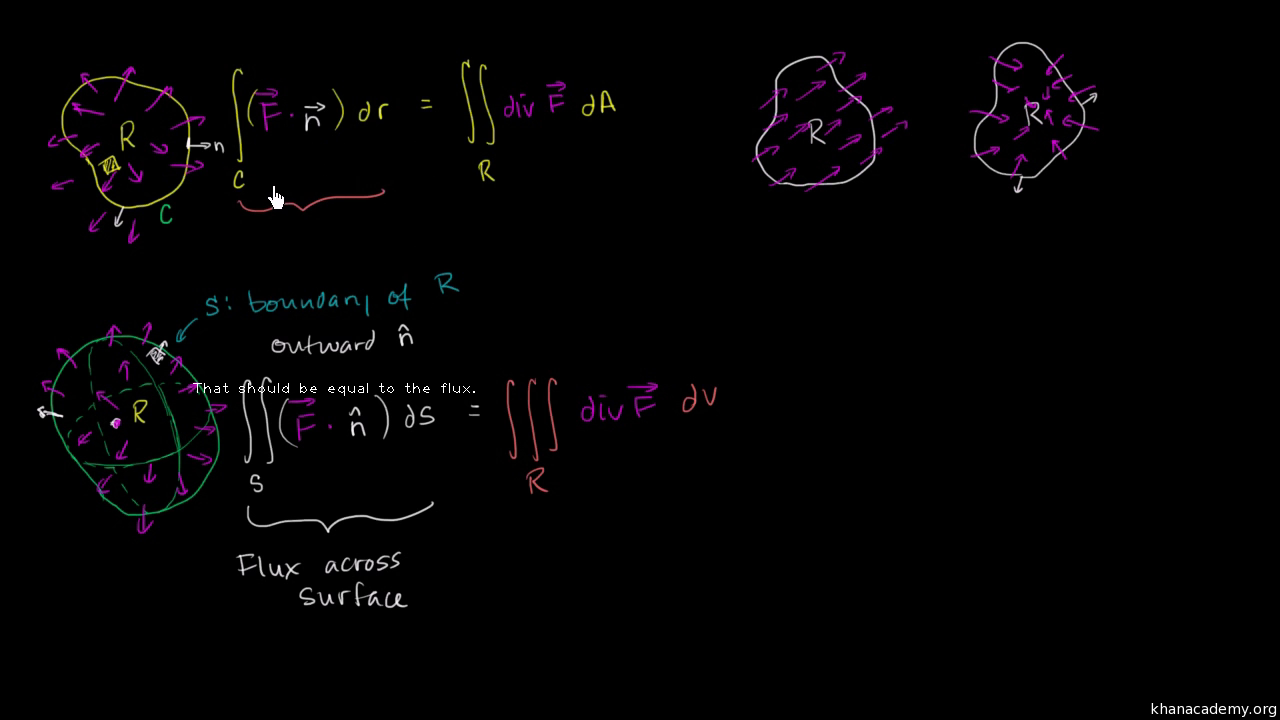 R
n
C
∫ ( F⃗ · n⃗ ) dr = ∬ div F⃗ dA
C R
R
R
S: boundary of R
outward n̂
That should be equal to the flux.
R
∬ ( F⃗ · n̂ ) dS = ∭ div F⃗ dV
S R
Flux across
surface
khanacademy.org